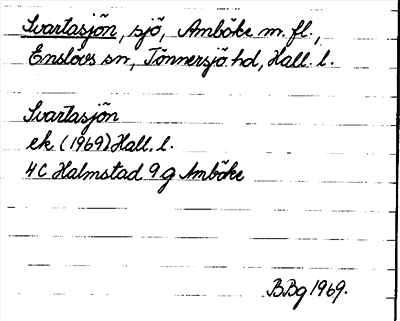 Svartasjön, sjö, Amböke m.fl.,
Enslövs sn, Tönnersjö hd, Hall. l.
Svartasjön
ek (1969) Hall. l.
4C Halmstad 9g Amböke
BBg 1969.